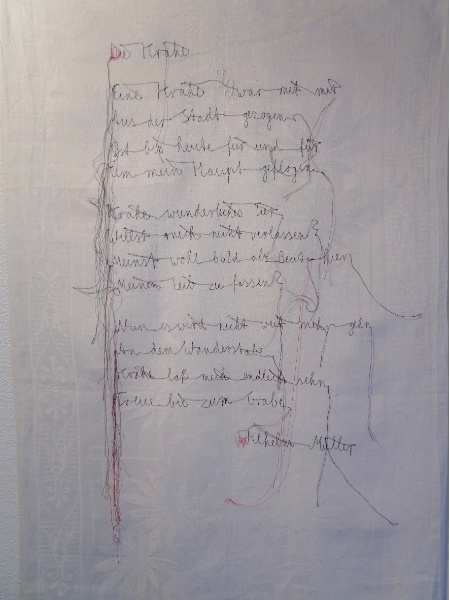 Die Krähe
Eine Krähe war mit mir
Aus der Stadt gezogen
Ist bis heute für und für
Um mein Haupt geflogen
Krähe wunderliches Tier
Willst mich nicht verlassen?
Meinst wohl bald als Beute hier
Meinen Leib zu fassen?
Nun es wird nicht weit mehr gehn
An dem Wanderstabe
Krähe laß mich endlich sehn
Treue bis zum Grabe
Wilhelm Müller